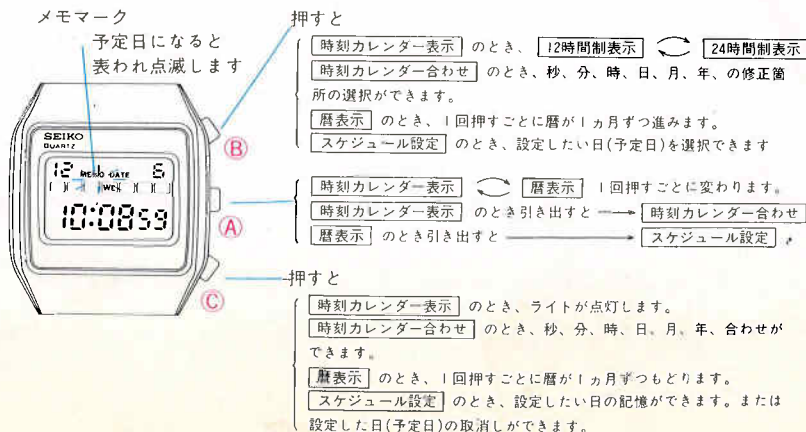 メモマーク
予定日になると
表われ点滅します
SEIKO
QUARTZ
12 MEMO DATE 6
WE
10:08 59
Ⓑ
Ⓐ
Ⓒ
押すと
時刻カレンダー表示 のとき、 12時間制表示 24時間制表示
時刻カレンダー合わせ のとき、秒、分、時、日、月、年、の修正箇
所の選択ができます。
暦表示 のとき、1回押すごとに暦が1ヵ月ずつ進みます。
スケジュール設定 のとき、設定したい日(予定日)を選択できます
時刻カレンダー表示 暦表示 1回押すごとに変わります。
時刻カレンダー表示 のとき引き出すと → 時刻カレンダー合わせ
暦表示 のとき引き出すと → スケジュール設定 。
押すと
時刻カレンダー表示 のとき、ライトが点灯します。
時刻カレンダー合わせ のとき、秒、分、時、日、月、年、合わせが
できます。
暦表示 のとき、1回押すごとに暦が1ヵ月ずつもどります。
スケジュール設定 のとき、設定したい日の記憶ができます。または
設定した日(予定日)の取消しができます。